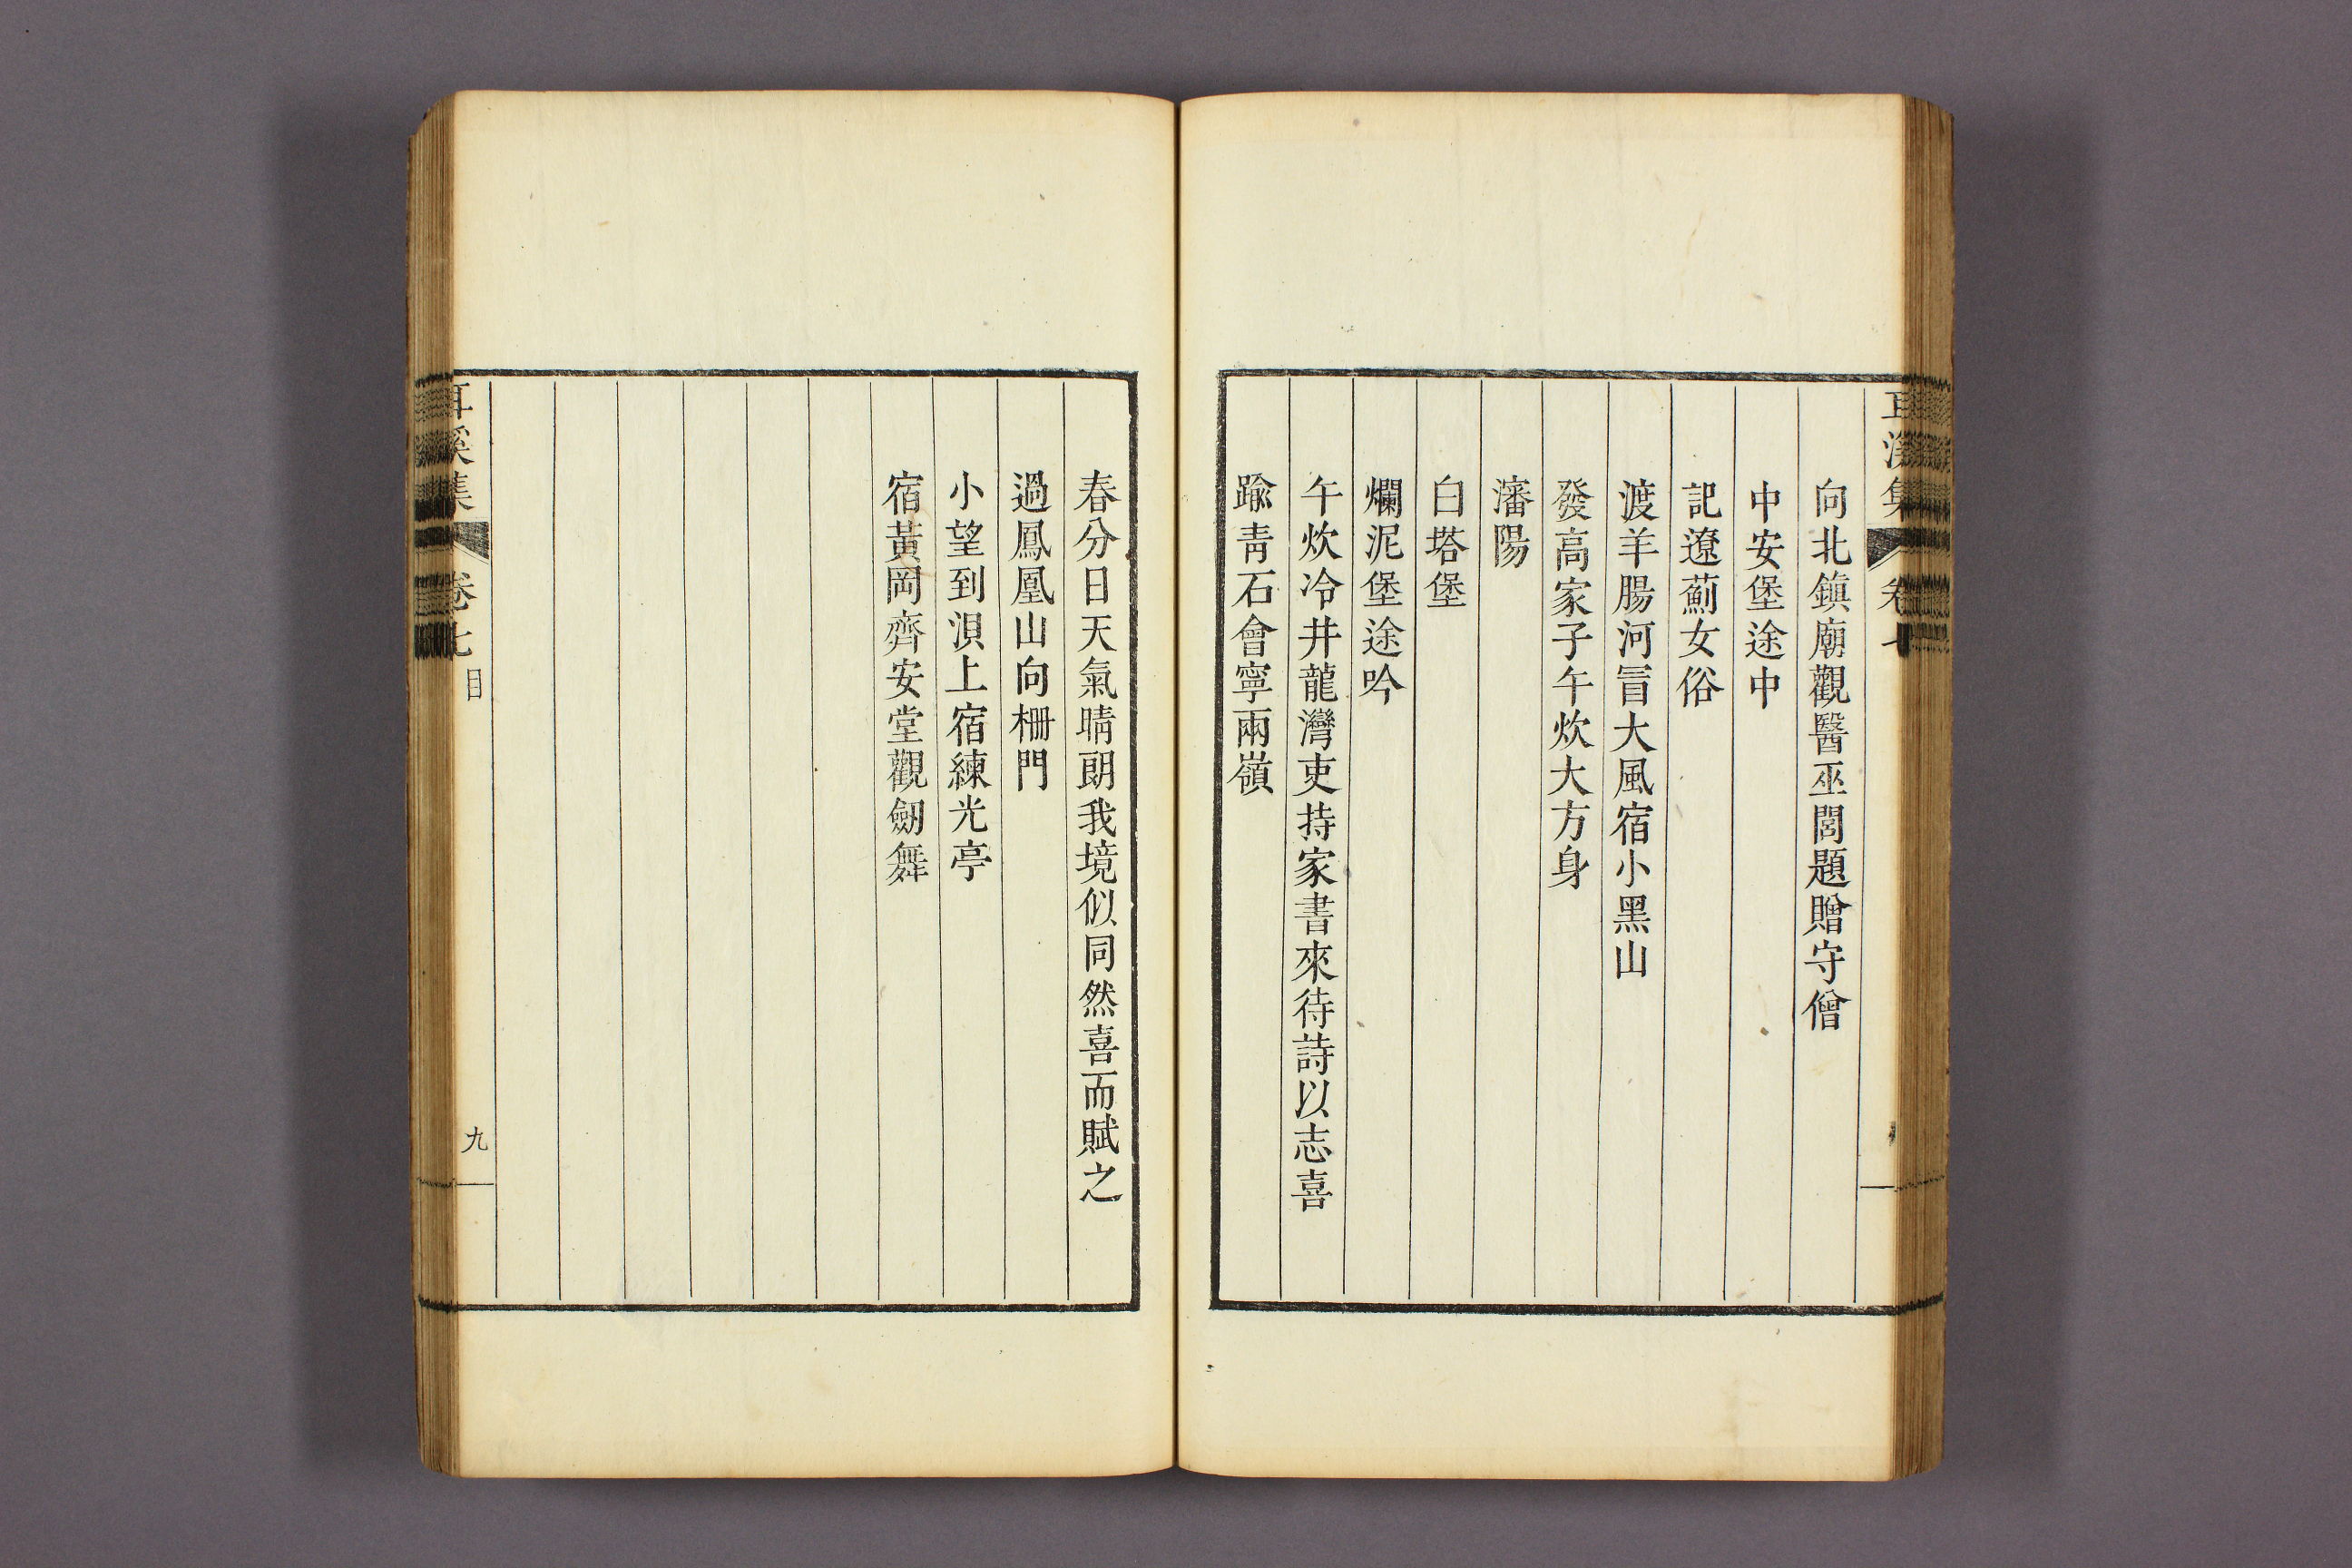 向北鎮廟觀醫巫閭題贈守僧
中安堡途中
記遼薊女俗
渡羊腸河冒大風宿小黑山
發高家子午炊大方身
瀋陽
白塔堡
爛泥堡途吟
午炊冷井龍灣吏持家書來待詩以志喜
踰靑石會寧兩嶺
春分日天氣晴朗我境似同然喜而賦之
過鳳凰山向柵門
小望到浿上宿練光亭
宿黃岡齊安堂觀劒舞
耳溪集
卷七
目
九